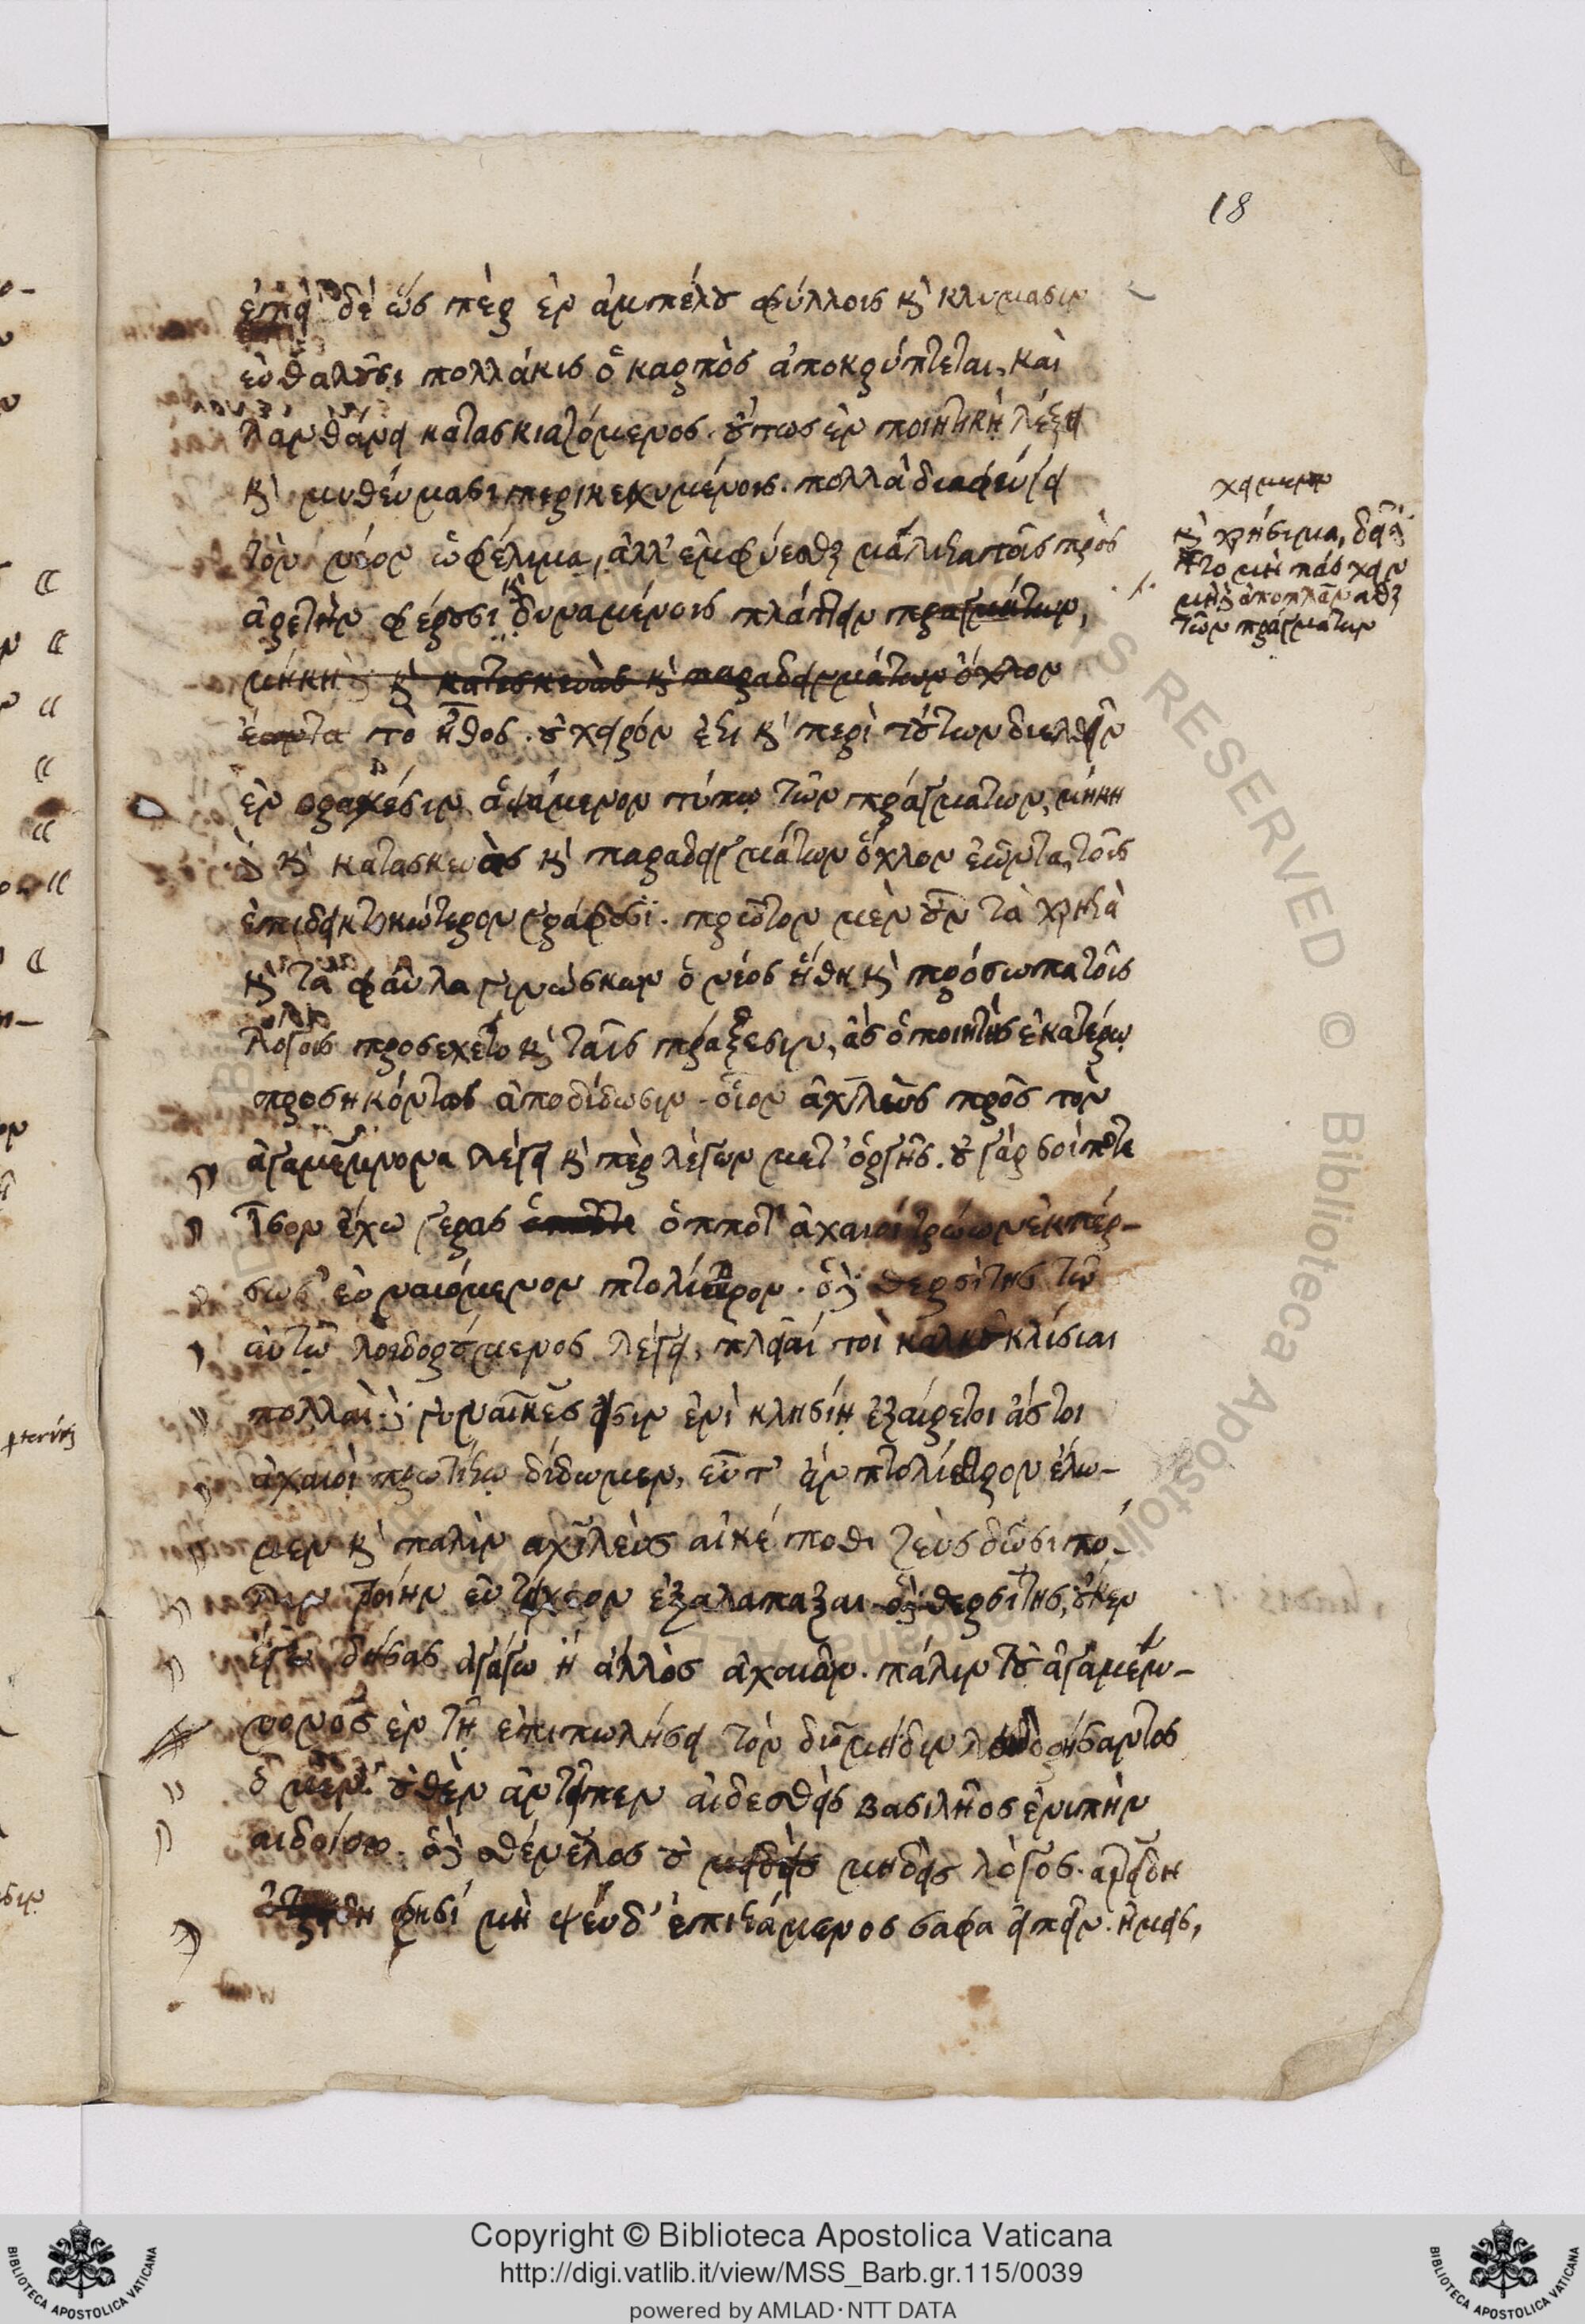 18
ἐπεὶ δὲ ὥς περ ἐν ἀμπέλου φύλλοις κὶ κλήμασιν
εὐθαλοῦσι πολλάκις ὁ καρπὸς ἀποκρύπτεται, καὶ
λανθάνει κατασκιαζόμενος. οὕτως ἐν ποιητικῇ λέξει
κὶ μυθεύμασι περικεχυμένοις. πολλὰ διαφεύγει
τὸν νέον ὠφέλιμα,
κὶ χρήσιμα, δεῖ δὲ
τοῦτο μὴ πάσχειν
μὴ δὲ ἀποπλανᾶσθαι
τῶν πραγμάτων
ἀλλ' ἐμφύεσθαι μάλιστα τοῖς πρὸς
ἀρετὴν φέρουσι κὶ δυναμένοις πλάττειν πραγμάτων,
μήκη δὲ κὶ κατασκευὰς κὶ παραδειγμάτων ὄχλον
ἐῶντα τὸ ἦθος. οὐ χεῖρόν ἐστι κὶ περὶ τούτων διελθεῖν
ἐν βραχέσιν ἁψάμενον τύπῳ τῶν πραγμάτων, μήκη
δὲ κὶ κατασκευὰς κὶ παραδειγμάτων ὄχλον ἐῶντα, τοῖς
ἐπιδεικτικώτερον γράφουσι. πρῶτον μὲν οὖν τὰ χρηστὰ
κὶ τὰ φαῦλα γινώσκων ὁ νέος ἤθη κὶ πρόσωπα τοῖς
λόγοις προσεχέτω κὶ ταῖς πράξεσιν, ἃς ὁ ποιητὴς ἑκατέρῳ
προσηκόντως ἀποδίδωσιν. οἷον ἀχιλεὺς πρὸς τὸν
ἀγαμέμνονα λέγει κὶ περ λέγων μετ' ὀργῆς. οὐ γάρ σοί ποτε
ἶσον ἔχω γέρας ὁπποτ' ἀχαιοὶ τρώων ἐκπέρ-
σωσ' εὐναιόμενον πτολίεθρον. ὁ δὲ θερσίτης τῶ
αὐτῷ λοιδορούμενος λέγει, πλεῖαί τοι χαλκοῦ κλίσιαι
πολλαὶ δὲ γυναῖκες εἰσιν ἐνὶ κλησίῃ ἐξαίρετοι ἅς τοι
ἀχαιοὶ πρωτίστῳ δίδωμεν, εὖτ' ἂν πτολίεθρον ἕλω-
μεν κὶ παλὶν αχιλεὺς αἴκέ ποθι ζεὺς δῶσι πό-
λιν τροίην εὐτείχεον ἐξαλαπαξαι. ὁ δὲ θερσίτης, ὅν κεν
ἐγὼ δήσας ἀγάγω ἢ ἄλλος ἀχαιῶν. πάλιν τοῦ ἀγαμέμ-
νονος ἐν τῇ ἐπιπωλήσει τὸν διομήδην λοιδορήσαντος
ὁ μὲν οὐθὲν ἀντεῖπεν αἰδεσθεὶς βασιλῆος ἐνιπὴν
αιδοίοιο. ὁ δὲ σθένελος οὗ μηδεὶς λόγος. ατρείδη
φησί μὴ ψεύδ' ἐπιστάμενος σαφα εἰπεῖν. ἡμεῖς,
Copyright © Biblioteca Apostolica Vaticana
http://digi.vatlib.it/view/MSS_Barb.gr.115/0039
powered by AMLAD·NTT DATA